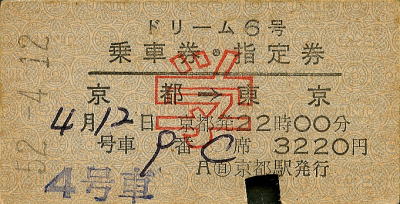 ドリーム6号
乗車券・指定券
京都→東京
4月12日 京都発22時00分
号車 9番 C席 3220円
A自京都駅発行
4号車
52.-4.12
学